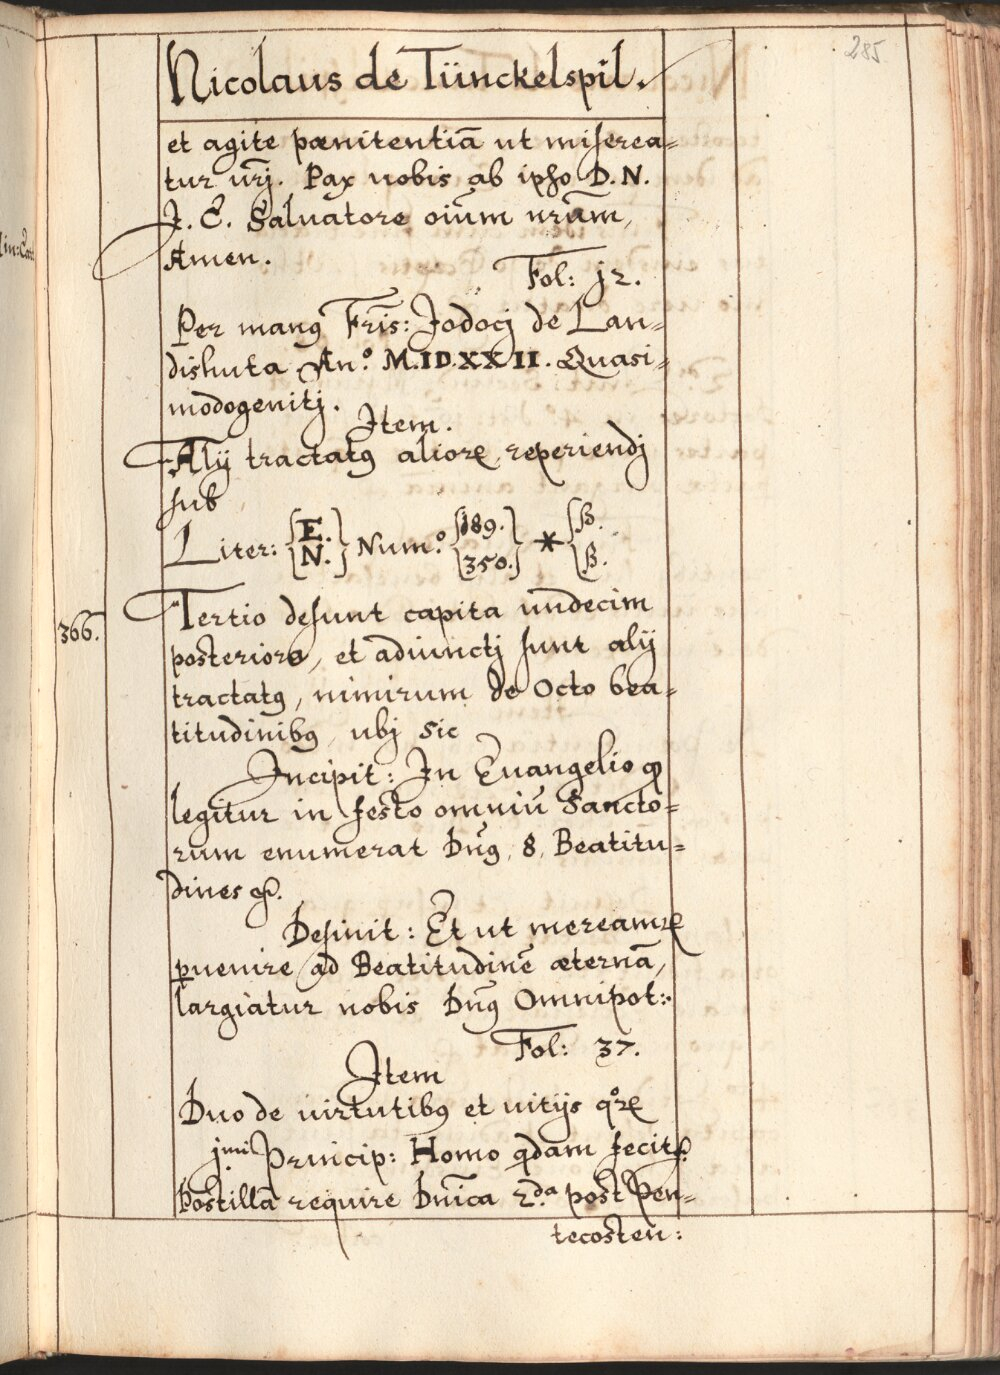 285
Nicolaus de Tünckelspil.
et agite pœnitentiā ut miserea=
tur vr̄j. Pax uobis ab ipso D. N.
J. C. Saluatore oīum nr̄um,
Amen.
Fol: j2.
Per manꝰ Fr̄is: Jodocj de Lan=
dishuta Anº. M.ID.XXII. Quasi=
modogenitj.
Item.
Alÿ tractatꝰ alioꝝ reperiendj
sub
Liter: {E. N.} Num.º {189. 350.} * {B. B.
366.
Tertio desunt capita undecim
posteriora, et adiunctj sunt alÿ
tractatꝰ, nimirum de Octo bea=
titudinibꝰ, ubj sic
Incipit: In Euangelio qͦ
legitur in festo omniū Sancto=
rum enumerat Dn̄ꝰ 8. Beatitu=
dines &c.
Desinit: Et ut mereamꝝ
ꝑuenire ad Beatitudinē æternā,
largiatur nobis Dn̄ꝰ Omnipot:
Fol: 37.
Item
Duo de uirtutibꝰ et uitÿs qͦꝝ
jmi Princip: Homo qdam fecit &c.
Postillā require Dn̄ica 2.da post Pen=
tecosten: